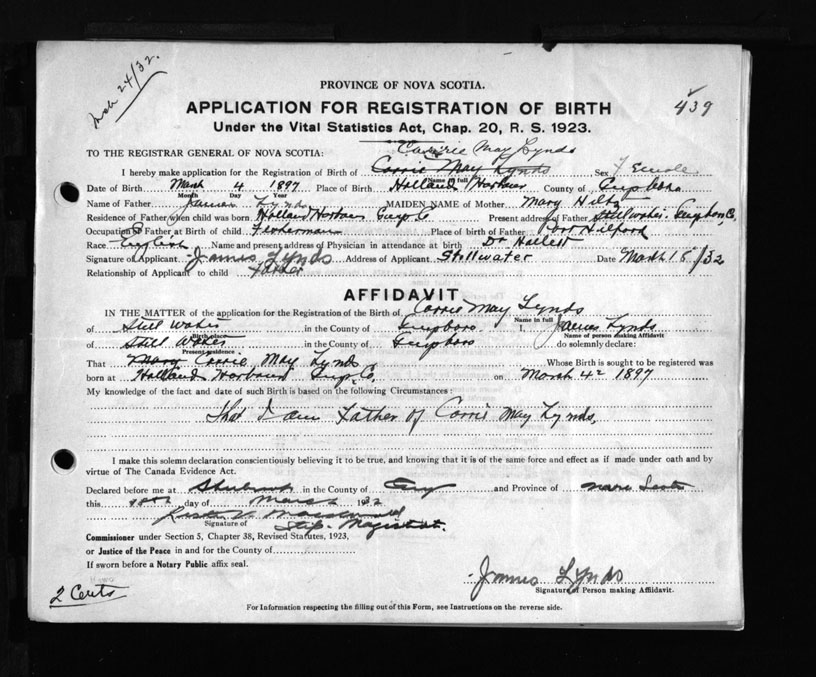 Mch 24/32.
PROVINCE OF NOVA SCOTIA.
APPLICATION FOR REGISTRATION OF BIRTH
439
Under the Vital Statistics Act, Chap. 20, R. S. 1923.
Carrie May Lynds
TO THE REGISTRAR GENERAL OF NOVA SCOTIA:
I hereby make application for the Registration of Birth of Corrie May Lynds Sex Female
Name in full
Date of Birth March 4 1897 Place of Birth Holland Harbour County of
Month Day Year
Name of Father James Lynds MAIDEN NAME of Mother Mary Hiltz
Residence of Father when child was born Holland Harbour Guys Co Present address of Father Stillwater. Guysboro Co,
Occupation of Father at Birth of child Fisherman Place of birth of Father Port Hilford
Race English Name and present address of Physician in attendance at birth Dr Hallett
Signature of Applicant James Lynds Address of Applicant Stillwater Date March 15/32
Relationship of Applicant to child Father
AFFIDAVIT
IN THE MATTER of the application for the Registration of the Birth of Corrie May Lynds
Name in full
of Still Water in the County of Guysboro. I, James Lynds
Name of person making Affidavit
of Still Water in the County of Guysboro do solemnly declare:
Present residence
That Mary Corrie May Lynds Whose Birth is sought to be registered was
born at Holland Harbour Guys. Co, on March 4 1897
My knowledge of the fact and date of such Birth is based on the following Circumstances:
That I am Father of Corrie May Lynds,
I make this solemn declaration conscientiously believing it to be true, and knowing that it is of the same force and effect as if made under oath and by
virtue of The Canada Evidence Act.
Declared before me at in the County of Guy and Province of Nova Scotia
this day of March 1932
Signature of Stip. Magistrate.
Commissioner under Section 5, Chapter 38, Revised Statutes, 1923,
or Justice of the Peace in and for the County of
If sworn before a Notary Public affix seal.
James Lynds
Signature of Person making Affidavit.
2 Cents
For Information respecting the filling out of this Form, see Instructions on the reverse side.